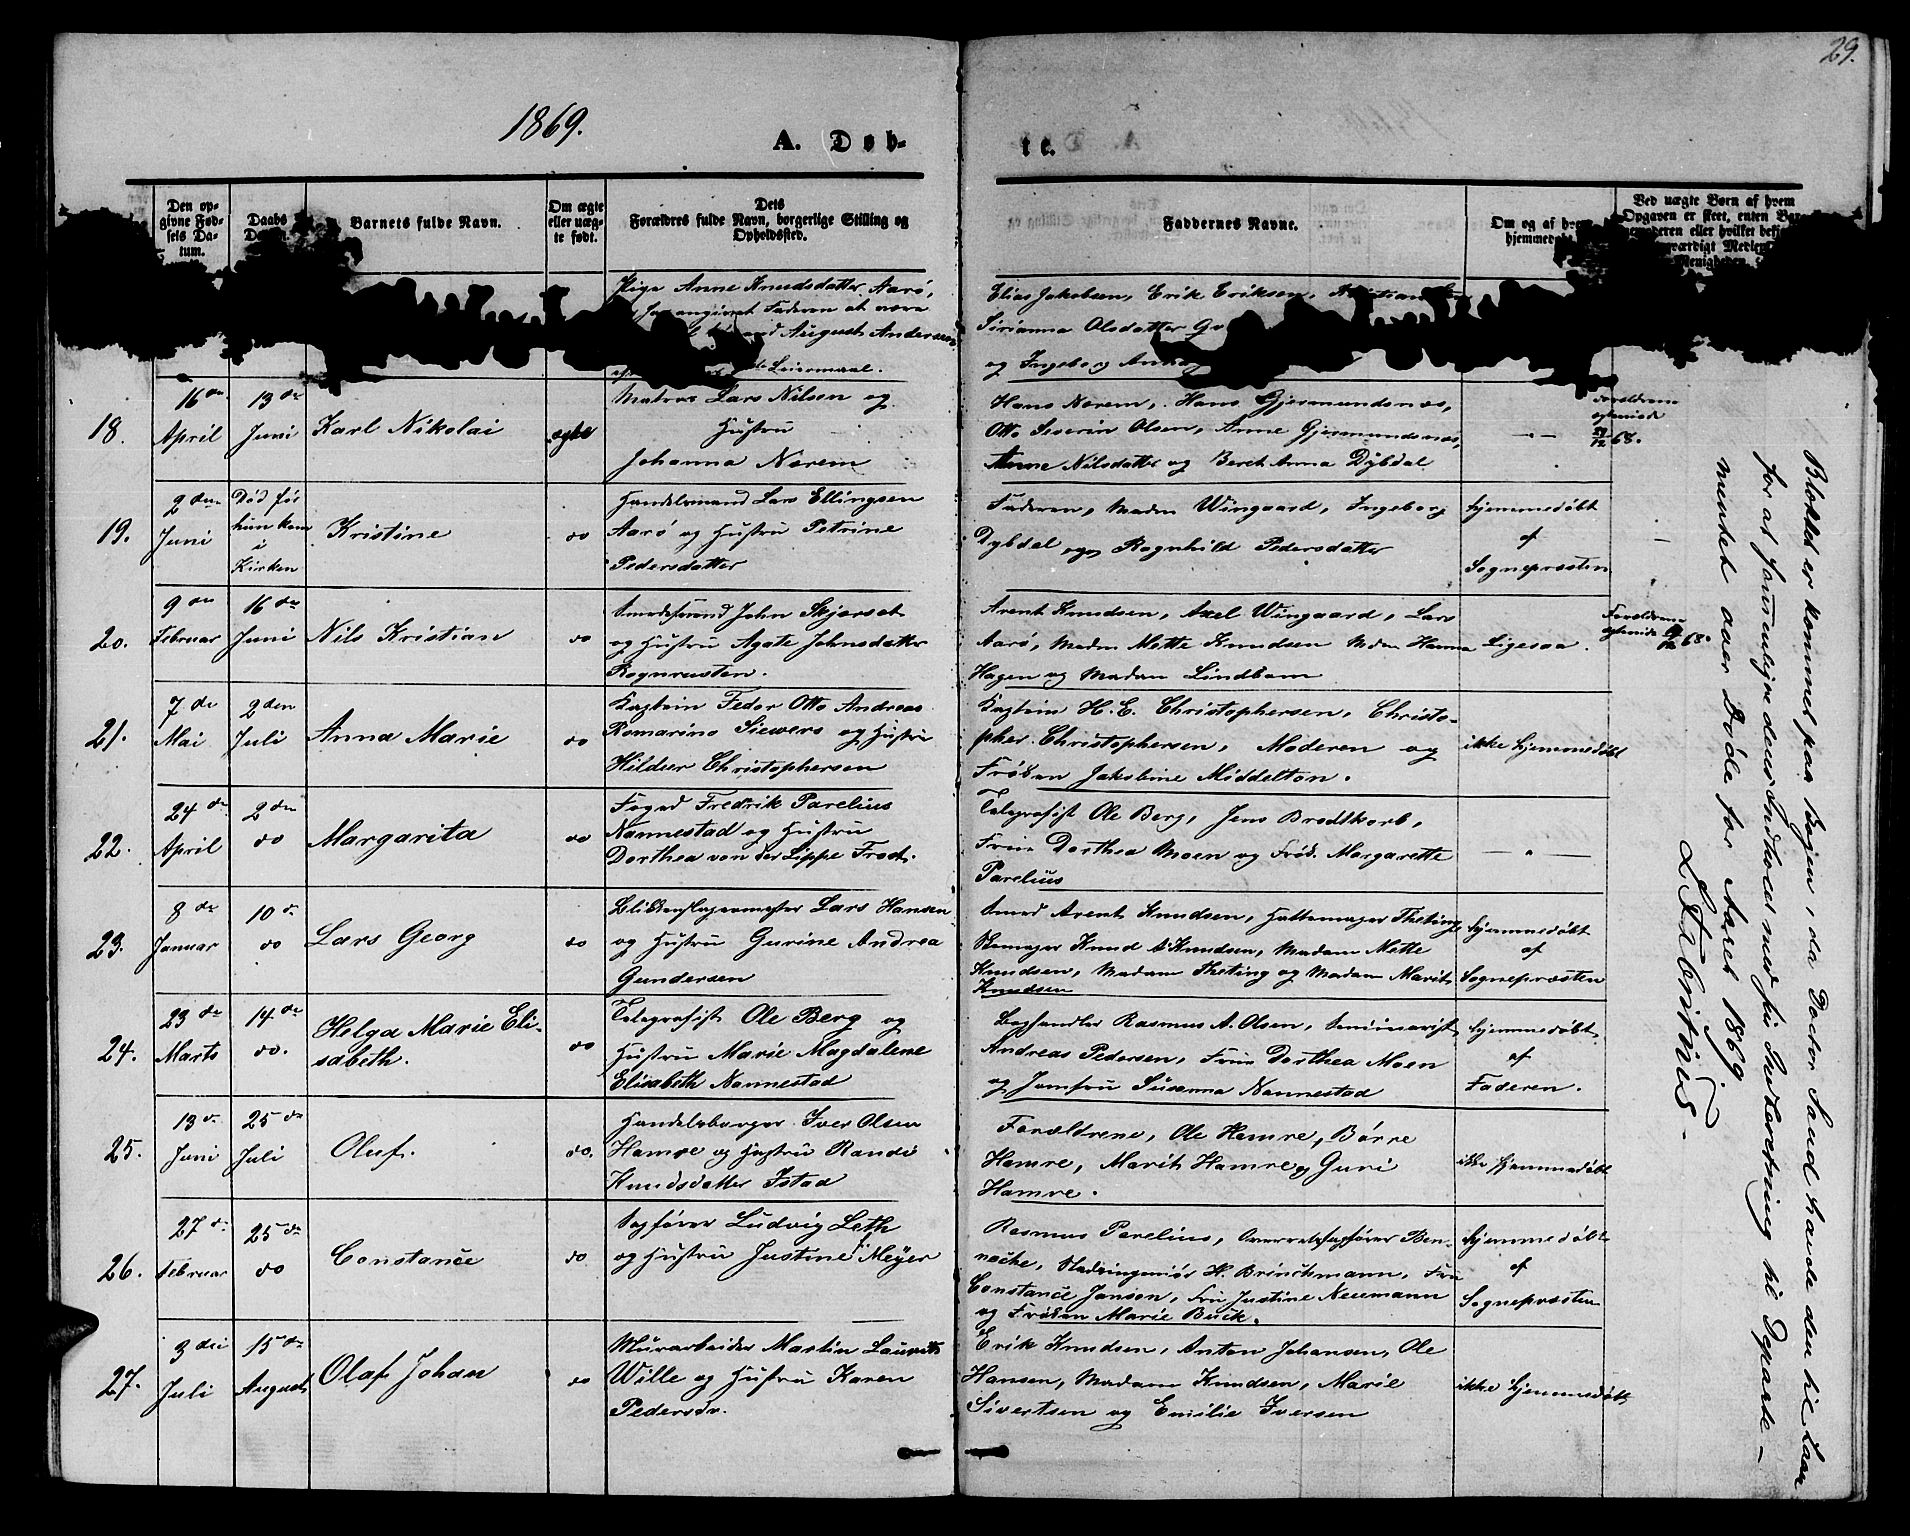 29.
1869.
A. Døb-
te.
Den op-
givne Fød-
sels Da-
tum.
Daabs
Barnets fulde Navn.
Om ægte
eller uæg-
te født.
Dets
Forældres fulde Navn, borgerlige Stilling og
Opholdssted.
Faddernes Navne.
Om og af
hjemmedøbt
Ved uægte Børn af hvem
Opgaven er skeet, enten Bar-
eller hvilket
værdigt
Menigheden.
Pige Anne Knudsdatter Aarø,
har angivet Faderen at være
August Andersen
Leiermaal.
Elias Jakobsen, Erik Eriksen, Kristian
Sirianna Olsdatter
og Ingeborg
18.
16de
April
13de
Juni
Karl Nikolai
ægte
Matros Lars Nilsen og
Hustru
Johanna Nerem
Hans Nerem, Hans Gjermundsnæs,
Otto Severin Olsen, Anne Gjermundsnæs,
Anne Nilsdatter og Beret Anna Dybdal
— " —
Forældrene
ægteviede
27/12 68.
19.
2den
Juni
Død før
hun kom
i
Kirken
Kristine
do
Handelsmand Lars Ellingsen
Aarø og Hustru Petrine
Pedersdatter
Faderen, Madm Wingaard, Ingeborg
Dybdal og Ragnhild Pedersdatter
hjemmedøbt
af
Sognepræsten
20.
9de
Februar
16de
Juni
Nils Kristian
do
John Skjerset
og Hustru Agate Johnsdatter
Rognrusten.
Arent Knudsen, Axel Wingaard, Lars
Aarø, Madm Mette Knudsen Mdm Hanna
Hagen og Madam Lindbom
Ligesaa.
Forældrene
ægteviede 68.
21.
7de
Mai
2den
Juli
Anna Marie
do
Kaptein Fedor Otto Andreas
Romarino Siewers og Hustru
Hildur Christophersen
Kaptein H. E. Christophersen, Christo-
pher Christophersen, Moderen og
Frøken Jakobine Middelton.
ikke hjemmedøbt
22.
24de
April
2den
do
Margarita
do
Foged Fredrik Parelius
Nannestad og Hustru
Dorthea von der Lippe Frost.
Telegrafist Ole Berg, Jens Brodtkorb,
Frue Dorthea Moen og Frøk. Margarette
Parelius
— " —
23.
8de
Januar
10de
do
Lars Georg
do
Blikkenslagermester Lars Hansen
og Hustru Gurine Andrea
Gundersen
Smed Arent Knudsen, Hattemager Theting,
Skomager Knud A Knudsen, Madam Mette
Knudsen, Madam Theting og Madam Marit
Knudsen
hjemmedøbt
af
Sognepræsten
24.
23de
Marts
14de
do.
Helga Marie Eli-
sabeth.
do
Telegrafist Ole Berg og
Hustru Marie Magdalene
Elisabeth Nannestad
Boghandler Rasmus A. Olsen, Seminarist
Andreas Pedersen, Frue Dorthea Moen
og Jomfru Susanna Nannestad
hjemmedøbt
af
Faderen.
25.
13de
Juni
25de
Juli
Oluf.
do.
Handelsborger Iver Olsen
Hamre og Hustru Randi
Knudsdatter Istad
Forældrene, Ole Hamre, Børre
Hamre, Marit Hamre og Guri
Hamre.
ikke hjemmedøbt
26.
27de
Februar
25de
do
Constance
do
Sagfører Ludvig Leth
og Hustru Justine Meyer
Rasmus Parelius, Overretssagfører Ben-
neche, Stadsingeniør H. Brinchmann, Fru
Constance Janson, Fru Justine Neumann
og Frøken Marie Buck.
hjemmedøbt
af
Sognepræsten
27.
3die
Juli
15de
August
Olaf Johan
do
Murarbeider Martin Laurits
Wille og Hustru Karen
Pedersdr.
Erik Knudsen, Anton Johansen, Ole
Hansen, Madam Knudsen, Marie
Sivertsen og Emilie Iversen
ikke hjemmedøbt
Blækket er kommet paa Bogen, da Doctor Sand havde den til Laan
for at sammenligne dens Indhold med sin Indberetning til Departe-
mentet over Døde for Aaret 1869
L Fabritius.